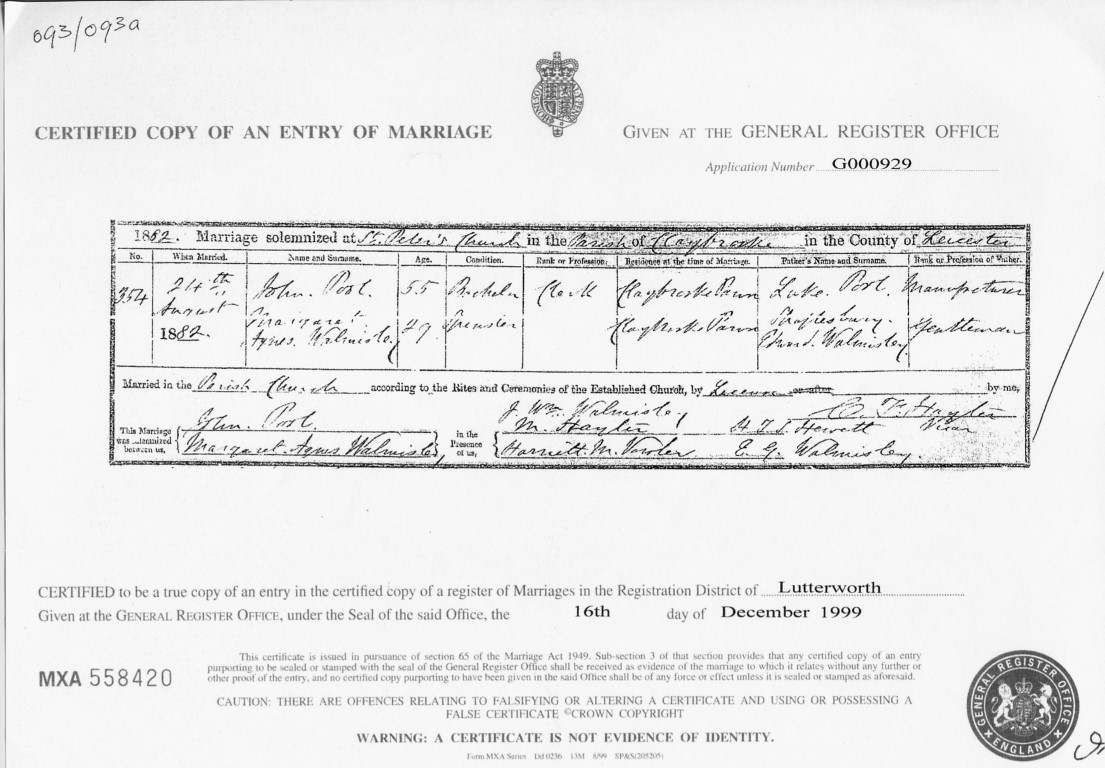 093/093a
CERTIFIED COPY OF AN ENTRY OF MARRIAGE
GIVEN AT THE GENERAL REGISTER OFFICE
Application Number G000929
1882. Marriage solemnized at St. Peter's Church in the Parish of Claybrooke in the County of Leicester
No. When Married. Name and Surname. Age. Condition. Rank or Profession. Residence at the time of Marriage. Father's Name and Surname. Rank or Profession of Father.
354 24th August 1882. John Post. 55 Bachelor Clerk Claybrooke Parva Luke Post. Manufacturer
Margaret Agnes Walmisley 49 Spinster Claybrooke Parva Edward Walmisley Gentleman
Married in the Parish Church according to the Rites and Ceremonies of the Established Church, by Licence or after by me,
This Marriage was solemnized between us,
John Post.
Margaret Agnes Walmisley,
in the Presence of us,
J. Wm. Walmisley
M. Hayter
Harriett M. Vowler
Hewett
E. G. Walmisley.
Hayter
Vicar
CERTIFIED to be a true copy of an entry in the certified copy of a register of Marriages in the Registration District of Lutterworth
Given at the GENERAL REGISTER OFFICE, under the Seal of the said Office, the 16th day of December 1999
MXA 558420
This certificate is issued in pursuance of section 65 of the Marriage Act 1949. Sub-section 3 of that section provides that any certified copy of an entry
purporting to be sealed or stamped with the seal of the General Register Office shall be received as evidence of the marriage to which it relates without any further or
other proof of the entry, and no certified copy purporting to have been given in the said Office shall be of any force or effect unless it is sealed or stamped as aforesaid.
CAUTION: THERE ARE OFFENCES RELATING TO FALSIFYING OR ALTERING A CERTIFICATE AND USING OR POSSESSING A
FALSE CERTIFICATE ©CROWN COPYRIGHT
WARNING: A CERTIFICATE IS NOT EVIDENCE OF IDENTITY.
Form MXA Series Dd 0236 13M 8/99 SP&S(205205)
GENERAL REGISTER OFFICE
ENGLAND